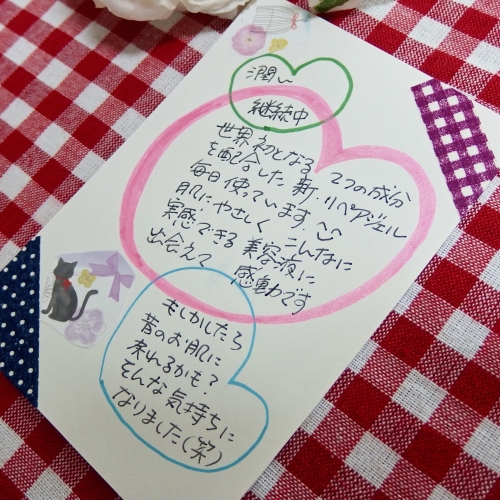 潤い
継続中
世界初となる 2つの成分
を配合した 新・リペアジェル
毎日使っています。
肌にやさしく こんなに
実感できる 美容液に
出会えて 感動です
もしかしたら
昔のお肌に
来れるかも?
そんな気持ちに
なりました(笑)